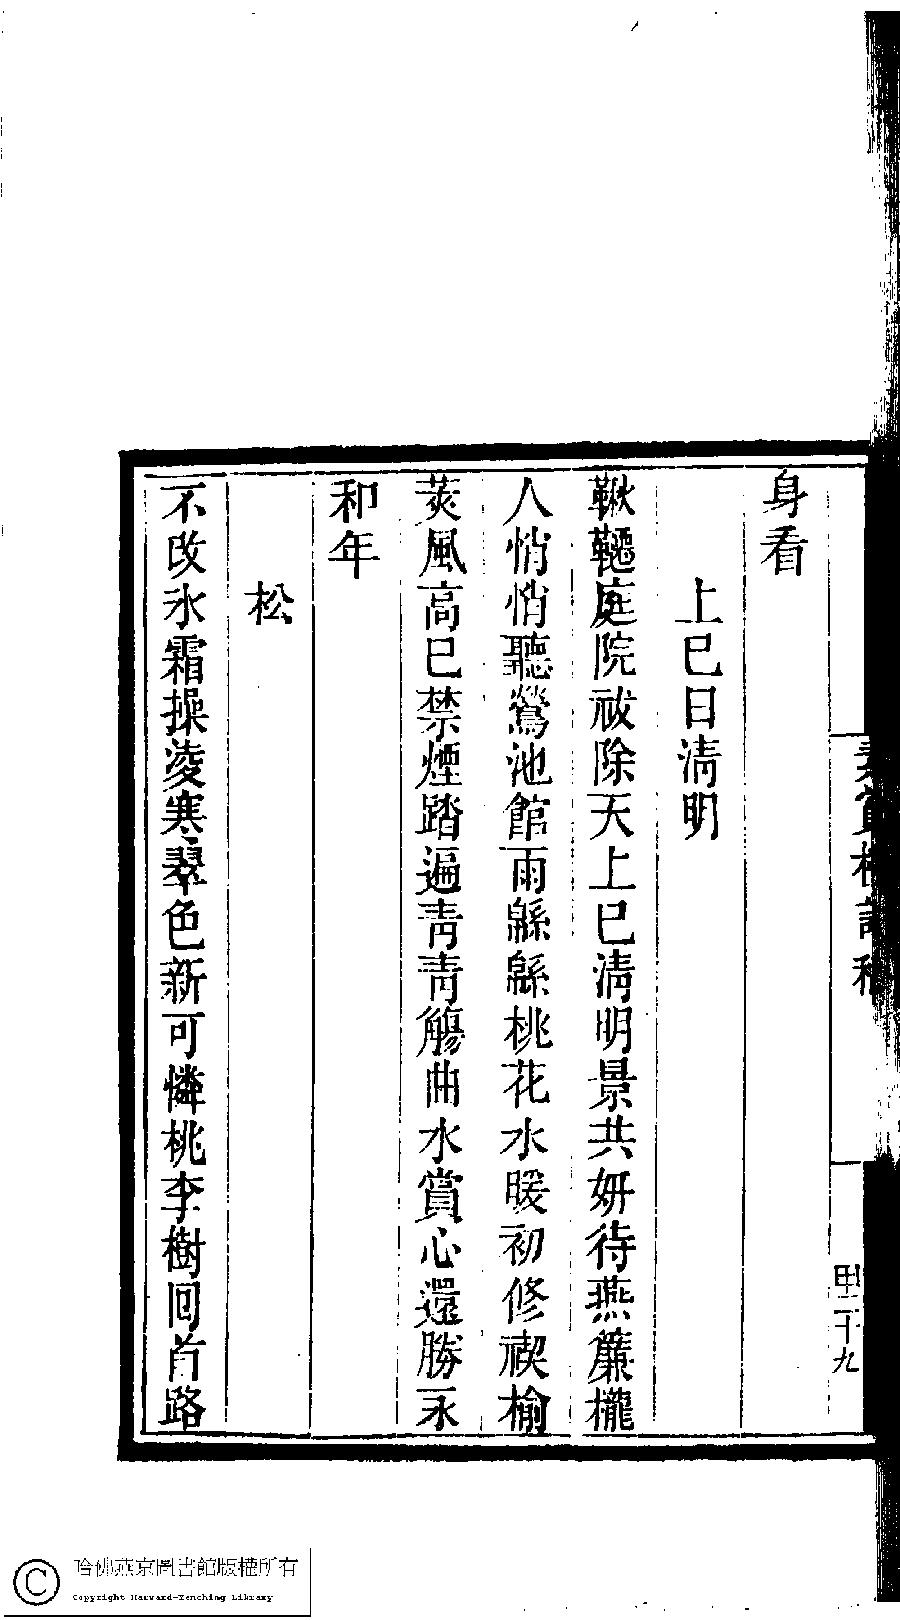 身看
上巳日淸明
鞦韆庭院祓除天上巳淸明景共姸待燕簾櫳
人悄悄聽鶯池館雨緜緜桃花水暖初修禊榆
莢風高已禁煙踏遍靑靑觴曲水賞心還勝永
和年
松
不改氷霜操凌寒翠色新可憐桃李樹回首路
甲二十九
哈佛燕京圖書館版權所有
Copyright Harvard-Yenching Library